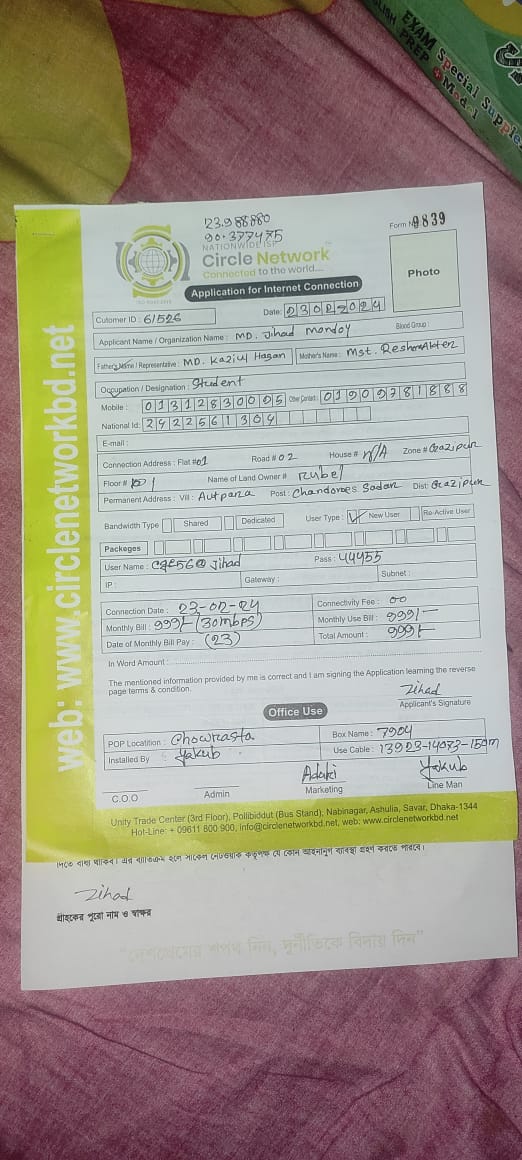 ENGLISH EXAM Special Supple
PREP + Model
23.988880
90.377475
Form No 9839
NATIONWIDE ISP
Circle Network
Connected to the world....
Photo
Application for Internet Connection
Cutomer ID : 61526 Date: 23022024
Applicant Name / Organization Name : MD. Jihad Mondoy Blood Group :
Father's Name / Representative : MD. Kaziul Hasan Mother's Name : Mst. Reshma Akter
Occupation / Designation : Student
Mobile : 01312830005 Other Contact : 01909781888
National Id: 2422561304
E-mail :
Connection Address : Flat #01 Road # 02 House # N/A Zone # Gazipur
Floor # Name of Land Owner # Rubel
Permanent Address : Vill : Autpara Post : Chandona Sadar Dist: Gazipur
Bandwidth Type Shared Dedicated User Type : New User Re-Active User
Packeges
User Name : Jihad Pass : 44455
IP : Gateway : Subnet :
Connection Date : 23-02-24 Connectivity Fee : 00
Monthly Bill : 999/- (30mbps) Monthly Use Bill : 999/-
Date of Monthly Bill Pay : (23) Total Amount : 999/-
In Word Amount :
The mentioned information provided by me is correct and I am signing the Application learning the reverse
page terms & condition.
Jihad
Applicant's Signature
Office Use
POP Locatition : Chowrasta Box Name : 7904
Installed By Yakub Use Cable : 13923-14073-150m
Yakub
C.O.O Admin Marketing Line Man
Unity Trade Center (3rd Floor), Pollibiddut (Bus Stand), Nabinagar, Ashulia, Savar, Dhaka-1344
Hot-Line: + 09611 800 900, info@circlenetworkbd.net, web: www.circlenetworkbd.net
web: www.circlenetworkbd.net
Jihad
গ্রাহকের পুরো নাম ও স্বাক্ষর
"দেশপ্রেমের শপথ নিন, দুর্নীতিকে বিদায় দিন"